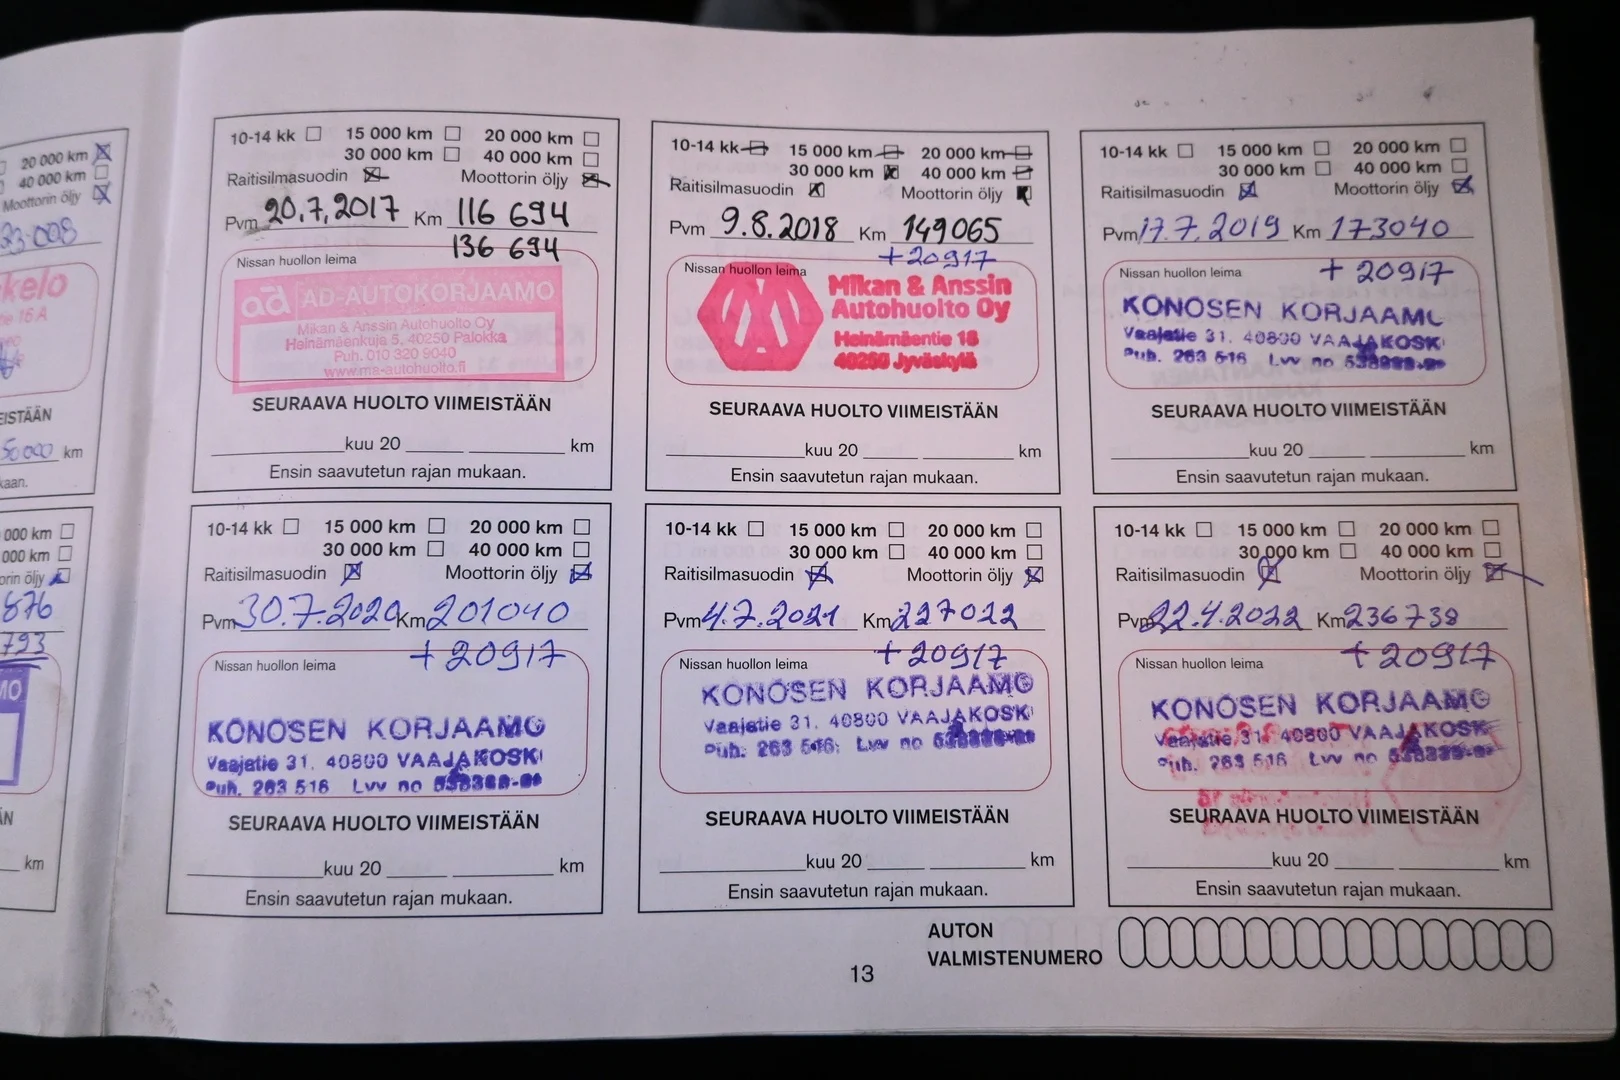 20 000 km
40 000 km
Moottorin öljy
23008
kelo
tie 16 A
EISTÄÄN
50000 km
kaan.
000 km
000 km
orin öljy
876
793
MO
ÄN
km
10-14 kk 15 000 km 20 000 km
30 000 km 40 000 km
Raitisilmasuodin Moottorin öljy
Pvm 20.7.2017 Km 116 694
136 694
Nissan huollon leima
ad AD-AUTOKORJAAMO
Mikan & Anssin Autohuolto Oy
Heinämäenkuja 5, 40250 Palokka
Puh. 010 320 9040
www.ma-autohuolto.fi
SEURAAVA HUOLTO VIIMEISTÄÄN
kuu 20 km
Ensin saavutetun rajan mukaan.
10-14 kk 15 000 km 20 000 km
30 000 km 40 000 km
Raitisilmasuodin Moottorin öljy
Pvm 9.8.2018 Km 149065
+20917
Nissan huollon leima
Mikan & Anssin
Autohuolto Oy
Heinämäentie 16
40250 Jyväskylä
SEURAAVA HUOLTO VIIMEISTÄÄN
kuu 20 km
Ensin saavutetun rajan mukaan.
10-14 kk 15 000 km 20 000 km
30 000 km 40 000 km
Raitisilmasuodin Moottorin öljy
Pvm 17.7.2019 Km 173040
+ 20917
Nissan huollon leima
KONOSEN KORJAAMO
Vaajatie 31. 40800 VAAJAKOSKI
Puh. 263 516 Lvv no
SEURAAVA HUOLTO VIIMEISTÄÄN
kuu 20 km
Ensin saavutetun rajan mukaan.
10-14 kk 15 000 km 20 000 km
30 000 km 40 000 km
Raitisilmasuodin Moottorin öljy
Pvm 30.7.2020 Km 201040
+20917
Nissan huollon leima
KONOSEN KORJAAMO
Vaajatie 31. 40800 VAAJAKOSKI
Puh. 263 516 Lvv no
SEURAAVA HUOLTO VIIMEISTÄÄN
kuu 20 km
Ensin saavutetun rajan mukaan.
10-14 kk 15 000 km 20 000 km
30 000 km 40 000 km
Raitisilmasuodin Moottorin öljy
Pvm 4.7.2021 Km 227022
+20917
Nissan huollon leima
KONOSEN KORJAAMO
Vaajatie 31. 40800 VAAJAKOSKI
Puh. 263 516 Lvv no
SEURAAVA HUOLTO VIIMEISTÄÄN
kuu 20 km
Ensin saavutetun rajan mukaan.
10-14 kk 15 000 km 20 000 km
30 000 km 40 000 km
Raitisilmasuodin Moottorin öljy
Pvm 22.4.2022 Km 236738
+20917
Nissan huollon leima
KONOSEN KORJAAMO
Vaajatie 31. 40800 VAAJAKOSKI
Puh. 263 516 Lvv no
SEURAAVA HUOLTO VIIMEISTÄÄN
kuu 20 km
Ensin saavutetun rajan mukaan.
AUTON
VALMISTENUMERO
13